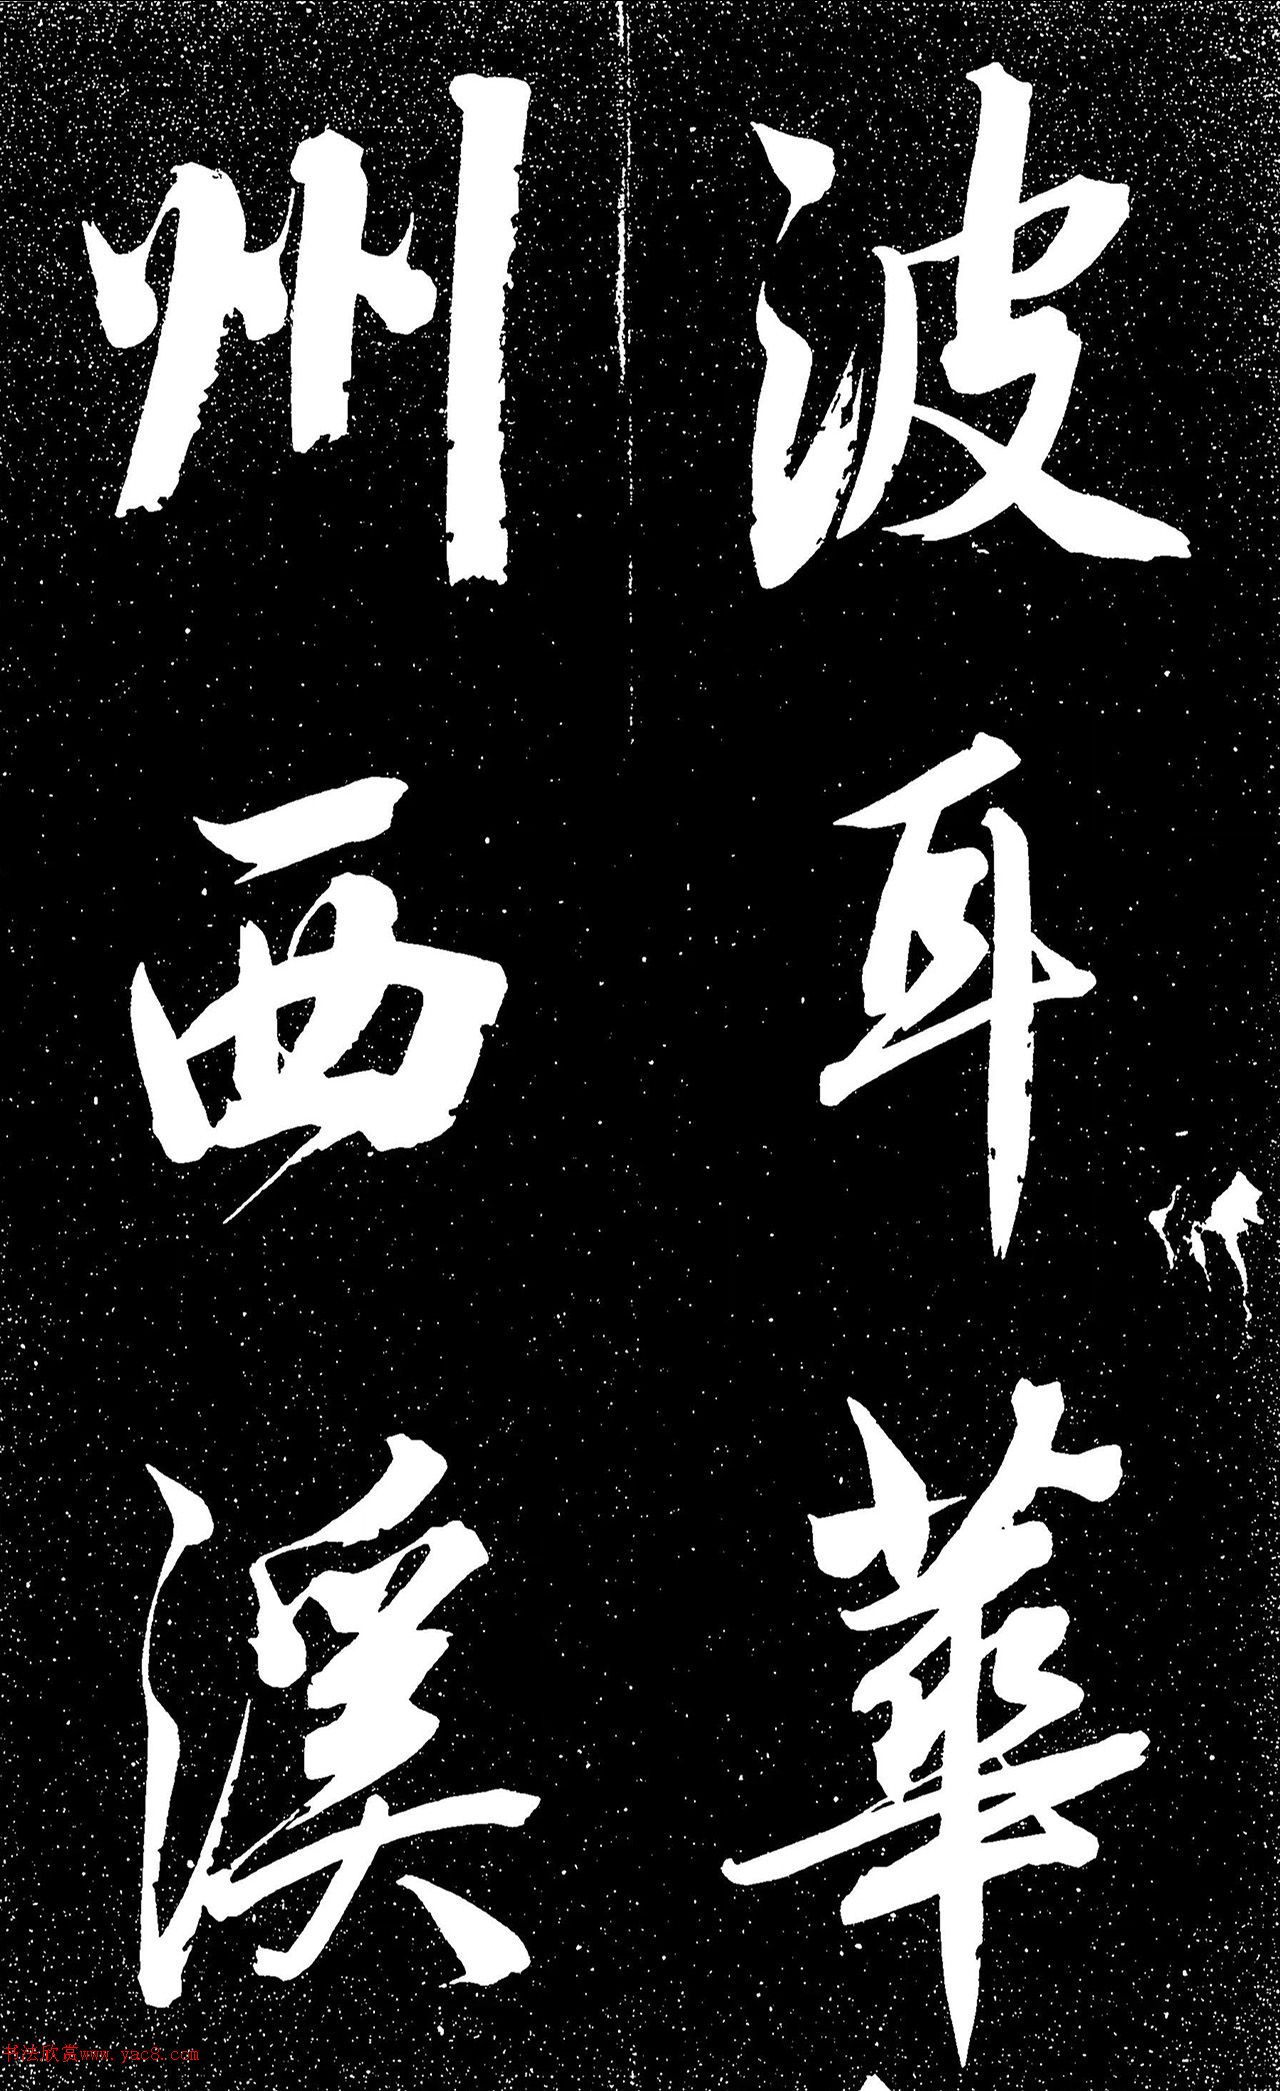 波耳華
州西溪
书法欣赏www.yac8.com